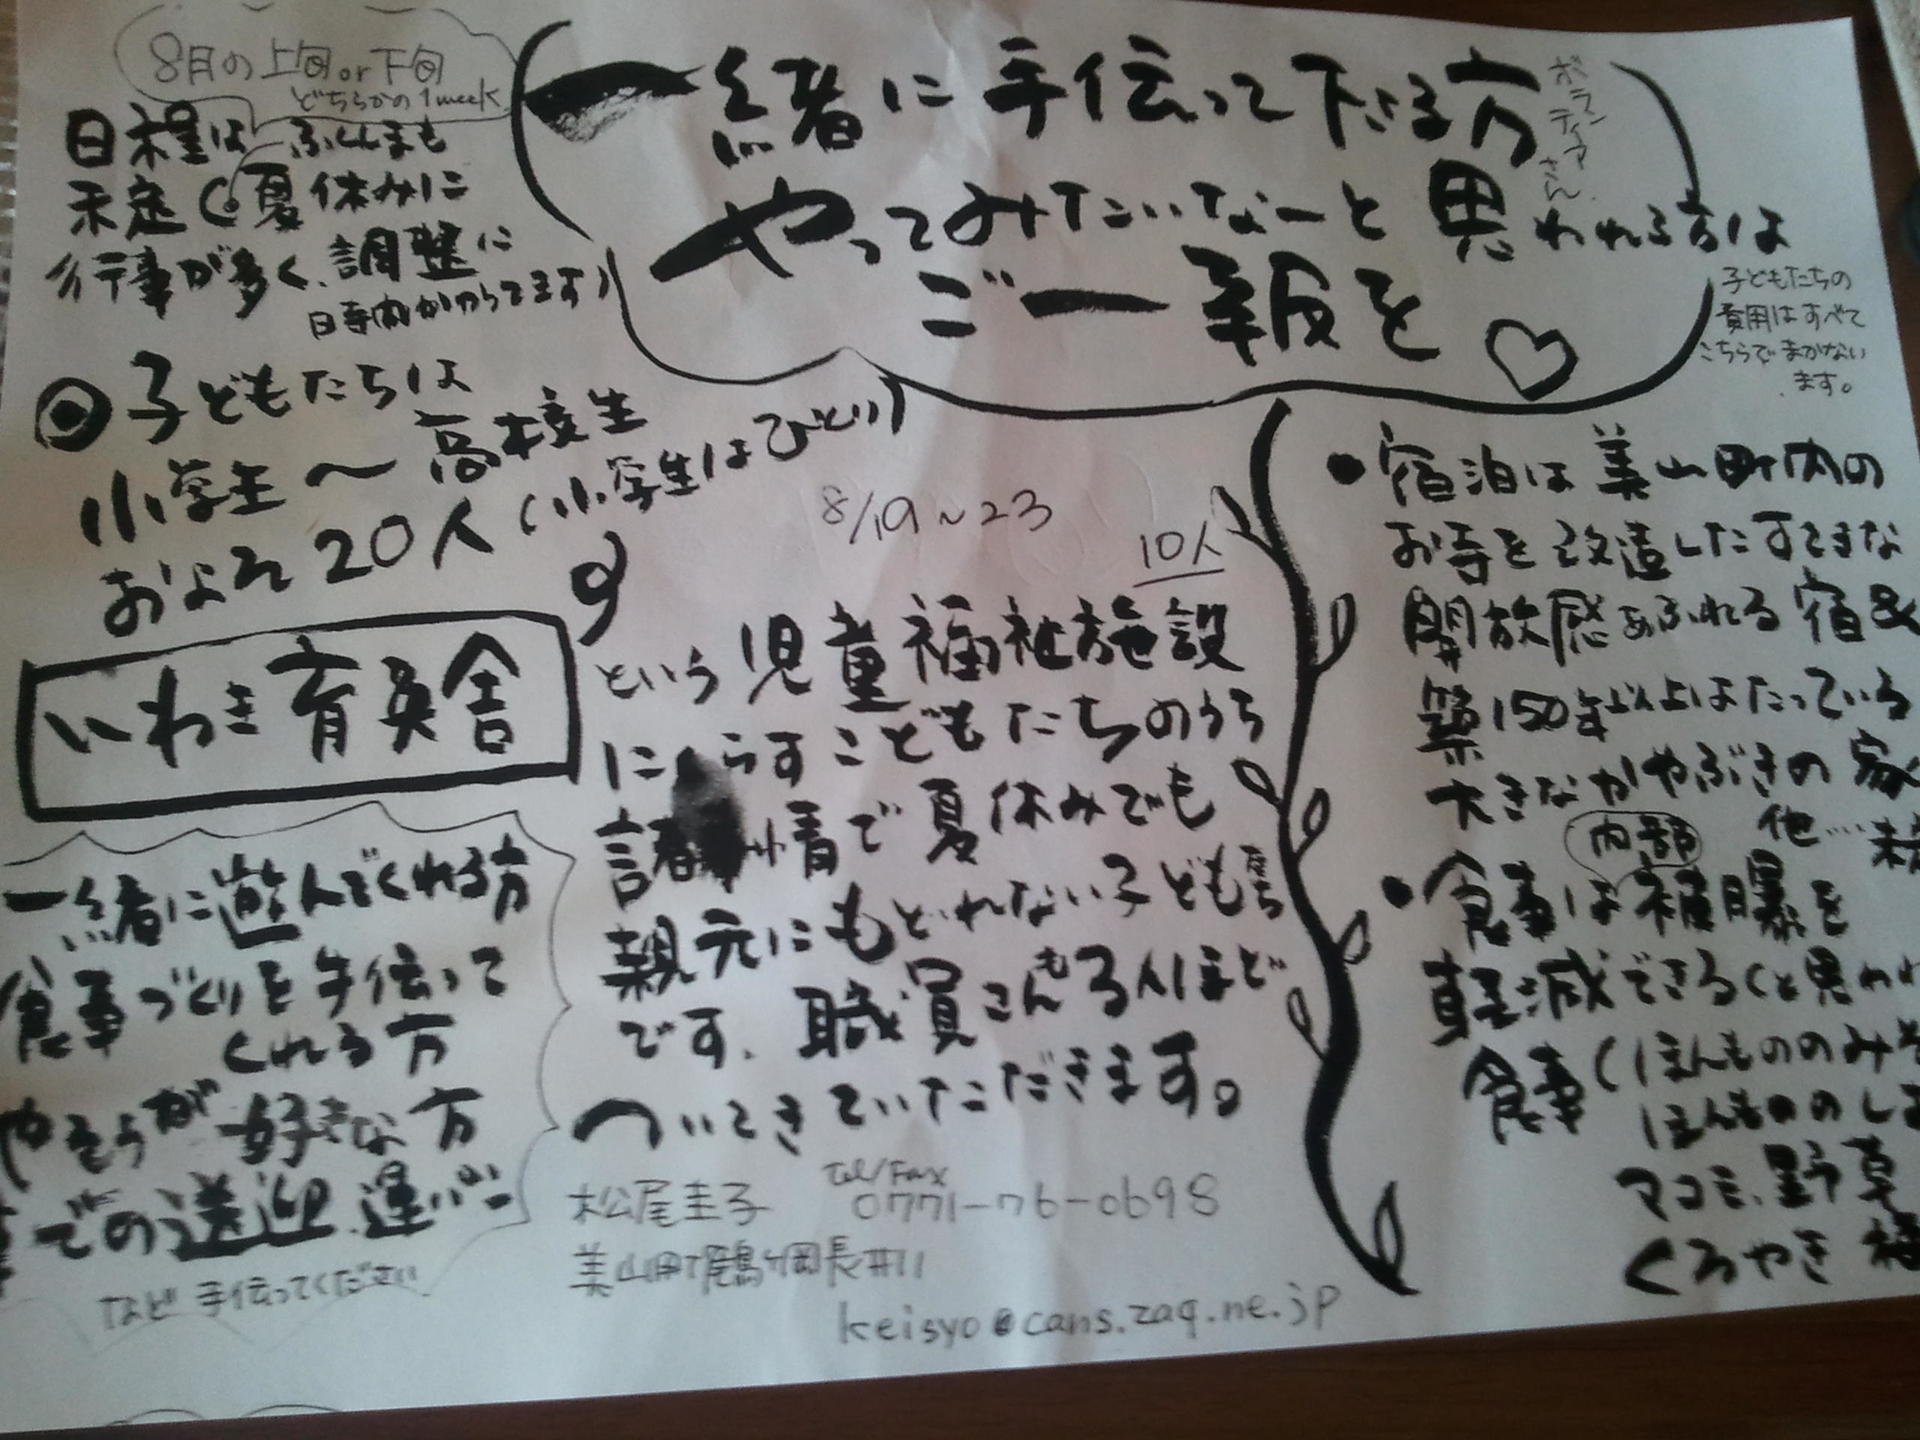 8月の上旬or下旬
どちらかの1week
日程は ふくんまも
未定(夏休みに
行事が多く、調整に
時間かかってます)
一緒に手伝って下さる方
ボランティアさん
やってみたいなーと思われる方は
ご一報を♡
子どもたちの
費用はすべて
こちらでまかない
ます。
◎子どもたちは
小学生〜高校生
およそ20人(小学生はひとり)
8/19~23
10人
いわき育英舎
という児童福祉施設
にくらすこどもたちのうち
諸事情で夏休みでも
親元にもどれない子ども達
です。職員さんも3人ほど
ついてきていただきます。
一緒に遊んでくれる方
食事づくりを手伝って
くれる方
やそうが好きな方
での送迎、運パン
など手伝ってください
松尾圭子 Tel/Fax 0771-76-0698
美山町鶴ヶ岡長井11
keisyo@cans.zaq.ne.jp
•宿泊は美山町内の
お寺を改造したすてきな
開放感あふれる宿&
築150年以上はたっている
大きなかやぶきの家
他…未
•食事は内部被曝を
軽減できる(と思わ
食事(ほんもののみそ
ほんもののし
マコモ、野草
くろやき